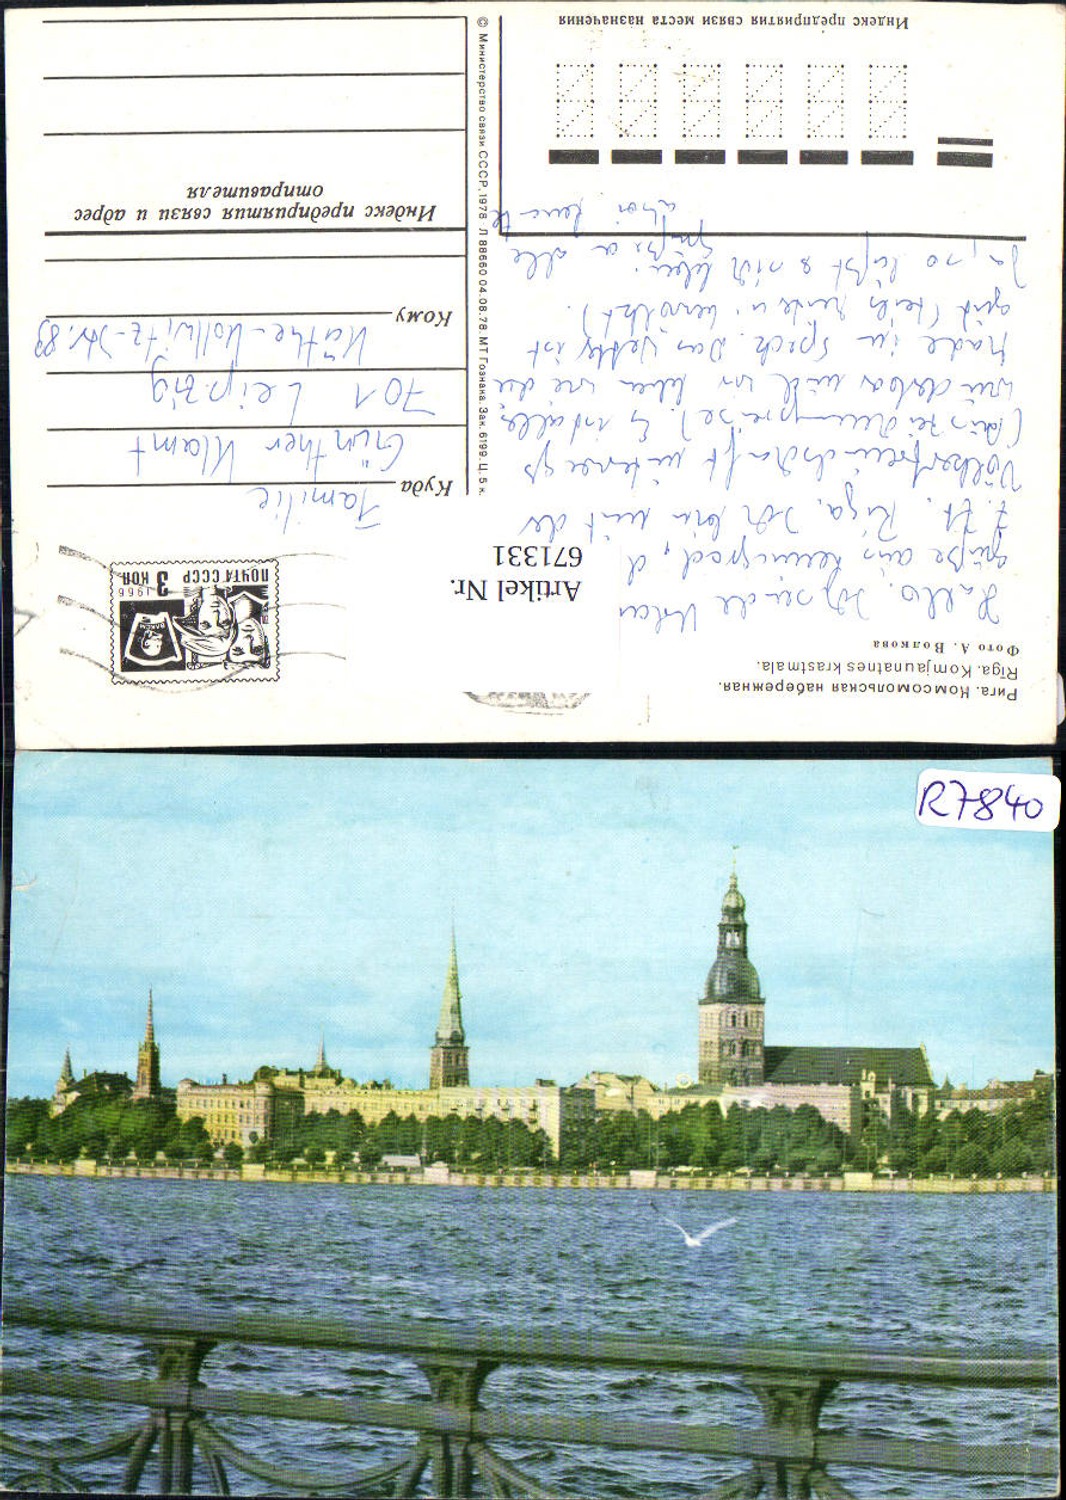 Рига. Комсомольская набережная.
Rīga. Komjaunatnes krastmala.
Фото А. Волкова
Hallo. Ich sende Urlaubs
grüße aus Leningrad, d.
z. Zt. Riga. Ich bin mit der
Völkerfreundschaft unterwegs
wir leben wie die
Made im Speck. Das Wetter ist
gut
Ja, so läßt
alle
Artikel Nr.
671331
ПОЧТА СССР 3 КОП
1966
Куда
Familie
Günther Klamt
701 Leipzig
Кому
Käthe-Kollwitz-Str. 89
Индекс предприятия связи и адрес
отправителя
© Министерство связи СССР, 1978 Л 88660 04.08.78. МТ Гознака. Зак. 6199. Ц. 5 к.
Индекс предприятия связи места назначения
R7840